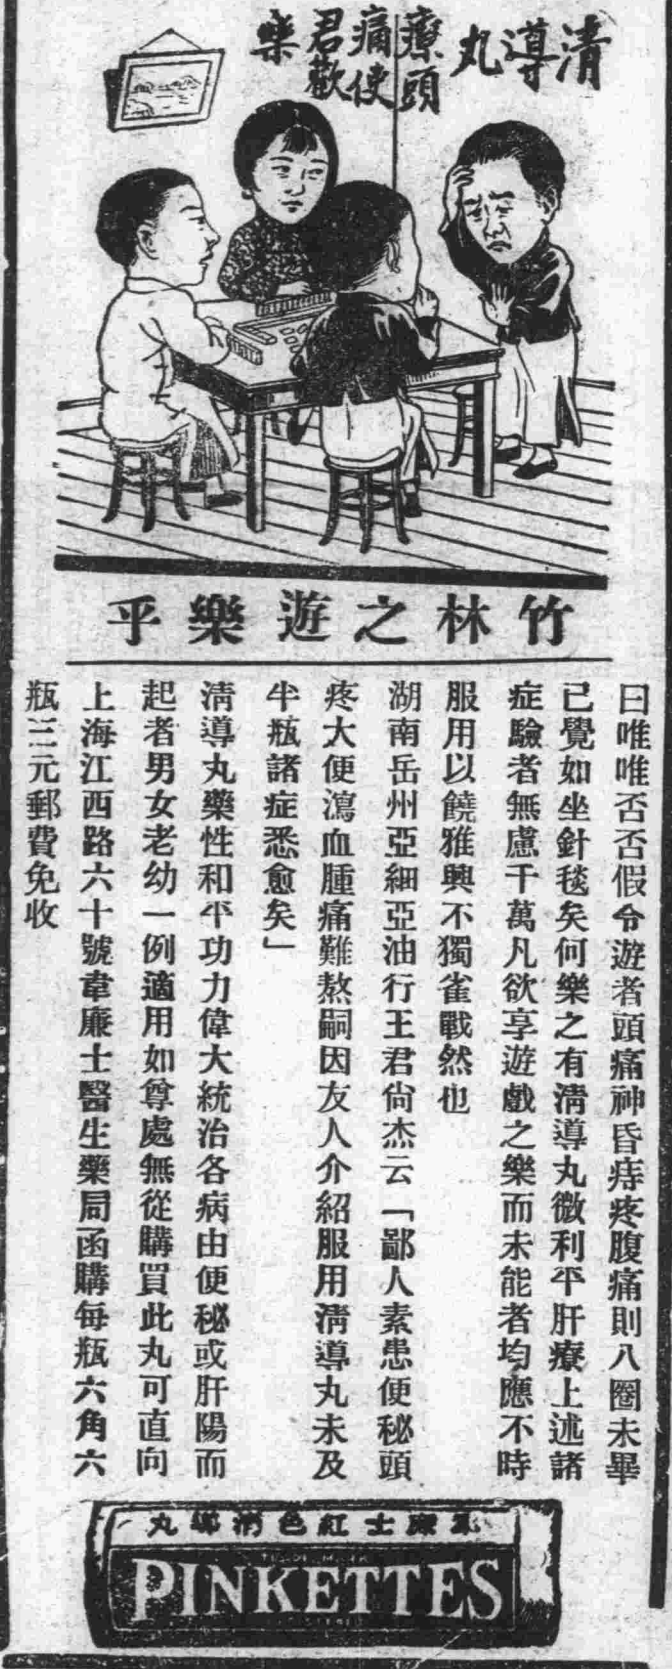 清導丸
療頭
痛使
君歡
樂
竹林之遊樂乎
曰唯唯否否假令遊者頭痛神昏痔疼腹痛則八圈未畢
已覺如坐針毯矣何樂之有清導丸微利平肝療上述諸
症驗者無慮千萬凡欲享遊戲之樂而未能者均應不時
服用以饒雅興不獨雀戰然也
湖南岳州亞細亞油行王君尙杰云「鄙人素患便秘頭
疼大便瀉血腫痛難熬嗣因友人介紹服用淸導丸未及
半瓶諸症悉愈矣」
淸導丸藥性和平功力偉大統治各病由便秘或肝陽而
起者男女老幼一例適用如尊處無從購買此丸可直向
上海江西路六十號韋廉士醫生藥局函購每瓶六角六
瓶三元郵費免收
廉士紅色淸導丸
PINKETTES